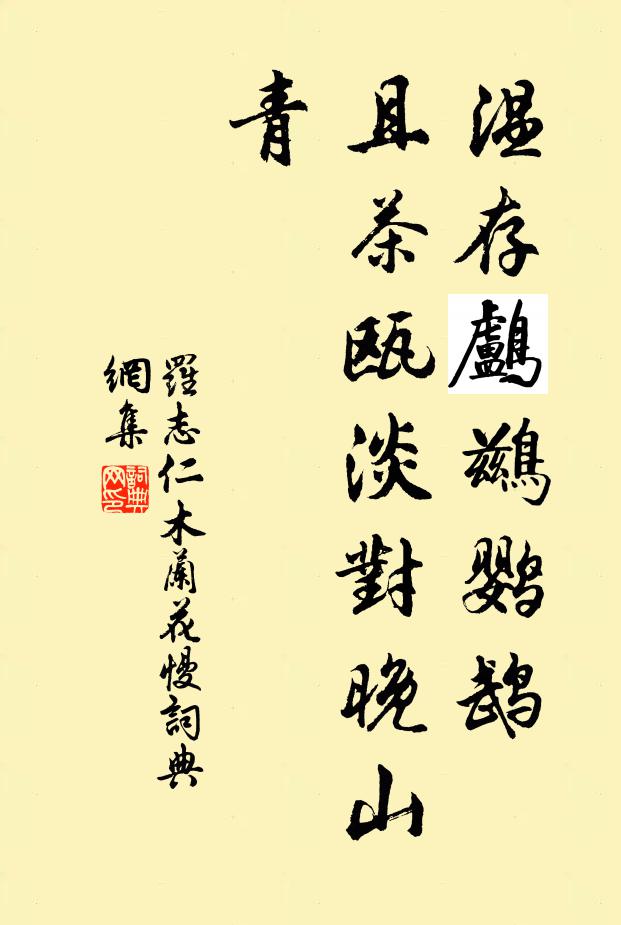 温存鸕鷀鸚鵡
且茶甌淡對晚山
青
羅志仁木蘭花慢詞典
網集
詞典
网印